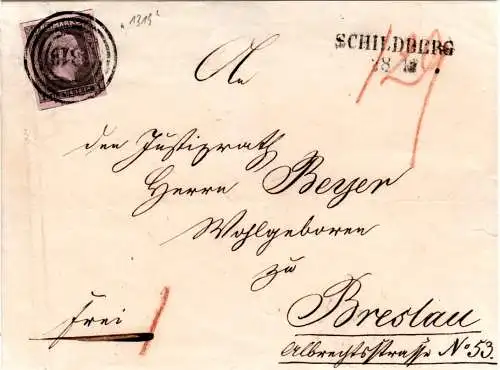 1319
SCHILDBERG
An
den Justizrath
Herrn Beyer
Wohlgeboren
zu
Breslau
Frei
Albrechtsstrasse No 53.